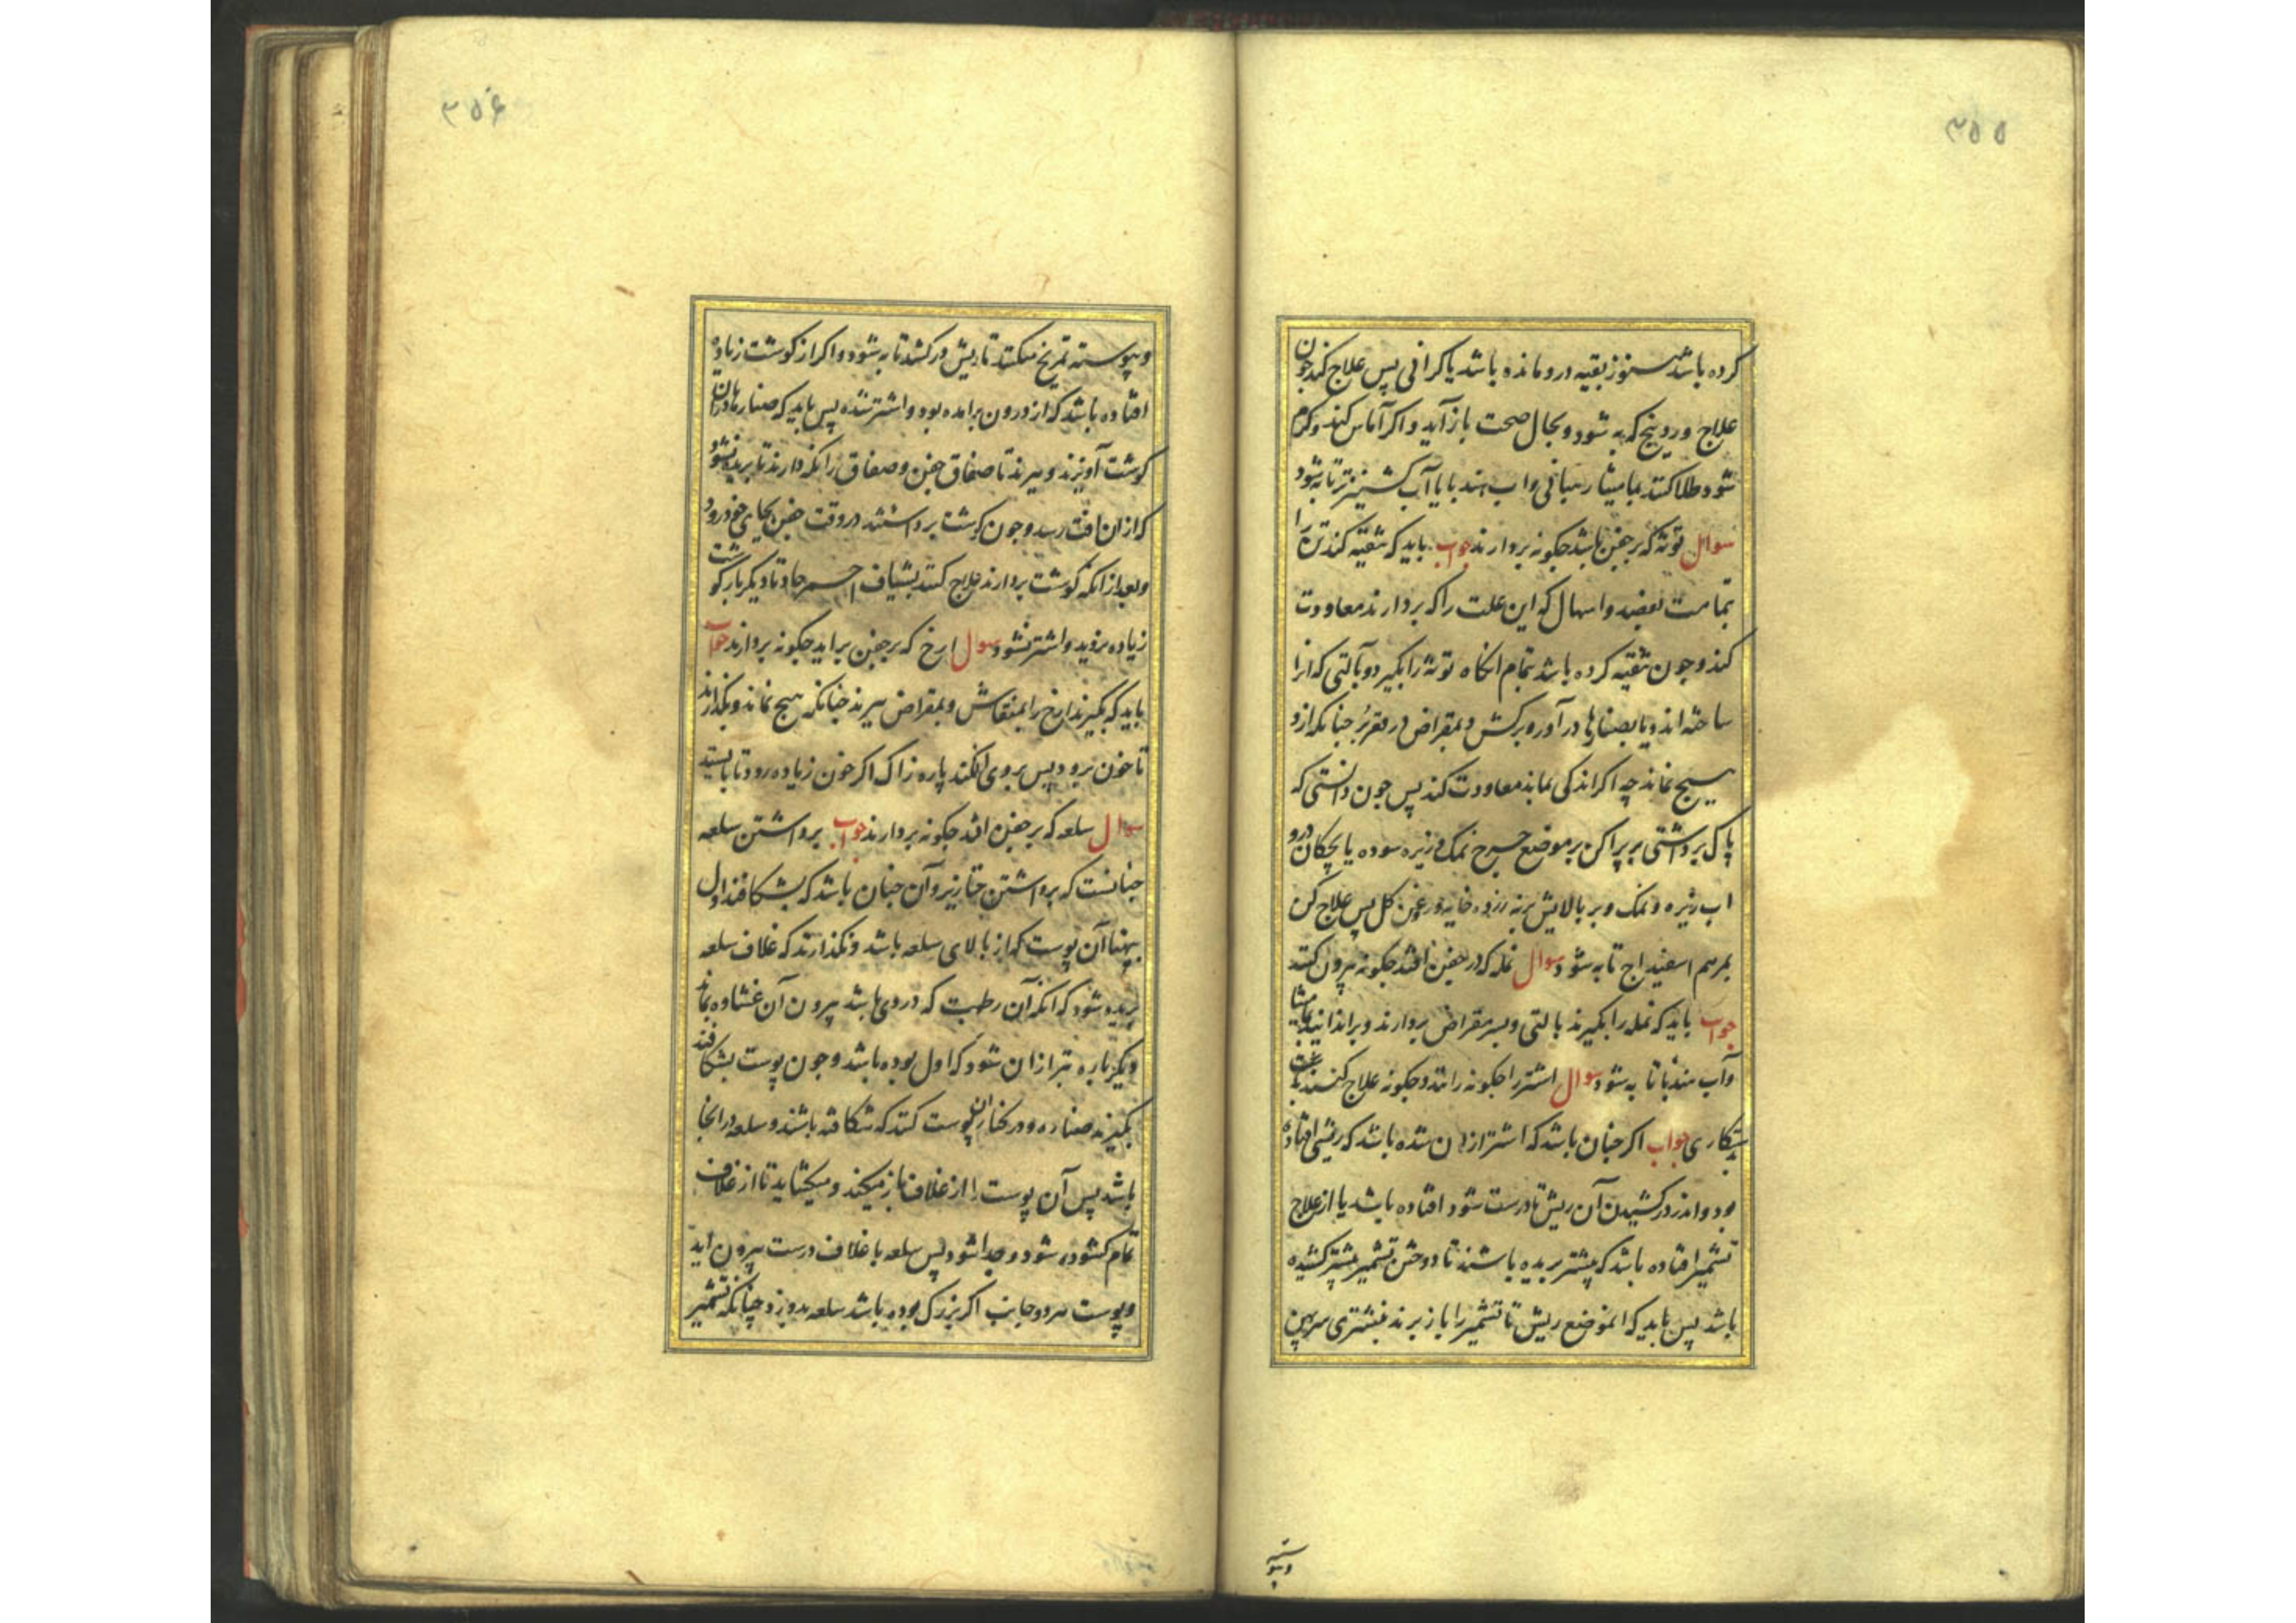 ۲۵۵
کرده باشد هنوز بقیه درو مانده باشد یا کرافی پس علاج کند چون
علاج وردینج که به شود و بحال صحت باز آید و اکر آماس کند و کرم
شود طلا کنند بمامیثا و آب هندبا یا آب کشنیز تر تا به شود
سوال توثه که بر جفن باشد چکونه بردارند جواب باید که تنقیه کند تن را
تمامت بفصد و اسهال که این علت را که بردارند معاودت
کند و چون تنقیه کرده باشد تمام انکاه توثه را بکیرد و بآلتی که انرا
ساخته اند و یا بصنارها در آورد برکش و بمقراض چنانکه ازو
هیچ نماند چه اکر اندکی بماند معاودت کند پس چون دانستی که
پاک برداشتی بر پراکن بر موضع جرح نمک و زیره سوده یا بچکان درو
اب زیره و نمک و بر بالایش برنه زرده خایه و روغن کل پس علاج کن
بمرهم اسفیداج تا به شود سوال نمله که در جفن افتد چکونه بیرون کنند
جواب باید که نمله را بکیرند بالتی و بسر مقراض بردارند و براندایند بمامیثا
و آب هندبا تا به شود سوال اشتر را چکونه رانند و چکونه علاج کنند بدست
شکاری جواب اکر چنان باشد که اشتر ازان شده باشد که ریشی افتاده
بود و اندر درکشیدن آن ریش تا درست شود افتاده باشد یا از علاج
تشمیر افتاده باشد که بیشتر بریده باشند تا دوختن تشمیر بیشتر کشیده
باشد پس باید که انموضع ریش تا تشمیر را باز برند بنشتری سر پهن
وپیوسته
۲۵۶
وپیوسته تمریخ میکنند تا ریش ورکشد تا به شود و اکر از کوشت زیاده
افتاده باشد که از درون برامده بود و اشتر شده پس باید که صنارها دران
کوشت آویزند و ببرند تا صفاق جفن و صفاق را نکه دارند تا بریده نشود
که ازان افت رسد و چون کوشت برداشتند در وقت جفن بجای خود رود
و بعد از انکه کوشت بردارند علاج کنند بشیاف احمر حاد تا دیکر بار کوشت
زیاده نروید و اشتر نشود سوال ارخ که بر جفن براید چکونه بردارند جواب
باید که بکیرند ارخ را بمنقاش و بمقراض ببرند چنانکه هیچ نماند و بکذارند
تا خون برود پس بروی افکند پاره زاک اکر خون زیاده رود تا بایستد
سوال سلعه که بر جفن افتد چکونه بردارند جواب برداشتن سلعه
چنانست که برداشتن خنازیر و آن چنان باشد که بشکافند اول
بپهنا آن پوست که از بالای سلعه باشد و نکذارند که غلاف سلعه
بریده شود که انکه آن رطبت که دروی باشد بیرون آن غشاوه بماند
و دیکر باره بتر ازان شود که اول بوده باشد و چون پوست بشکافند
بکیرند صناره و در کنار ان پوست کنند که شکافته باشند و سلعه در انجا
باشد پس آن پوست را از غلاف باز میکند و میکشاید تا از غلاف
تمام کشوده شود و جدا شود پس سلعه با غلاف درست بیرون اید
و پوست هر دو جانب اکر بزرک بوده باشد سلعه بدوزد چنانکه تشمیر